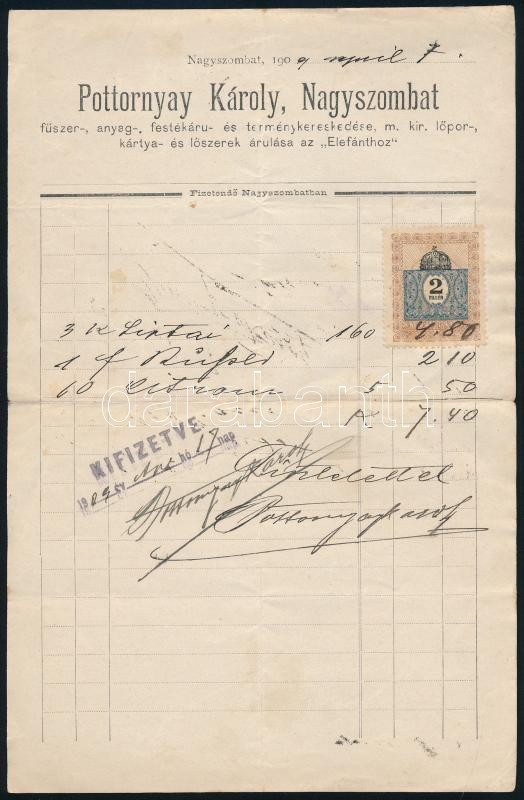 Nagyszombat, 1909 april 7.
Pottornyay Károly, Nagyszombat
fűszer-, anyag-, festékáru- és terménykereskedése, m. kir. lőpor-,
kártya- és lőszerek árulása az „Elefánthoz"
Fizetendő Nagyszombatban
2
FILLÉR
3 K 160 4.80
1 f 2 10
10 Citrom 5 50
7.40
darabanth
KIFIZETVE
1909 év Apr hó 17 nap
Tisztelettel
Pottornyay Károly
Pottornyay Károly